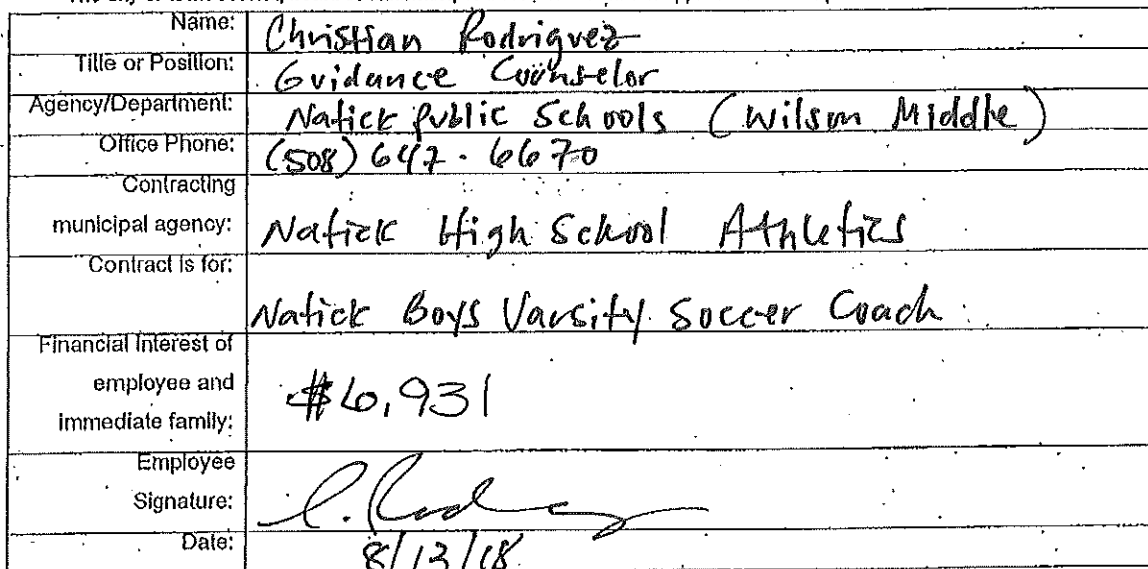 Name: Christian Rodriguez
Title or Position: Guidance Counselor
Agency/Department: Natick Public Schools (Wilson Middle)
Office Phone: (508) 647-6670
Contracting
municipal agency: Natick High School Athletics
Contract is for:
Natick Boys Varsity Soccer Coach
Financial Interest of
employee and $6,931
immediate family:
Employee
Signature:
Date: 8/13/18